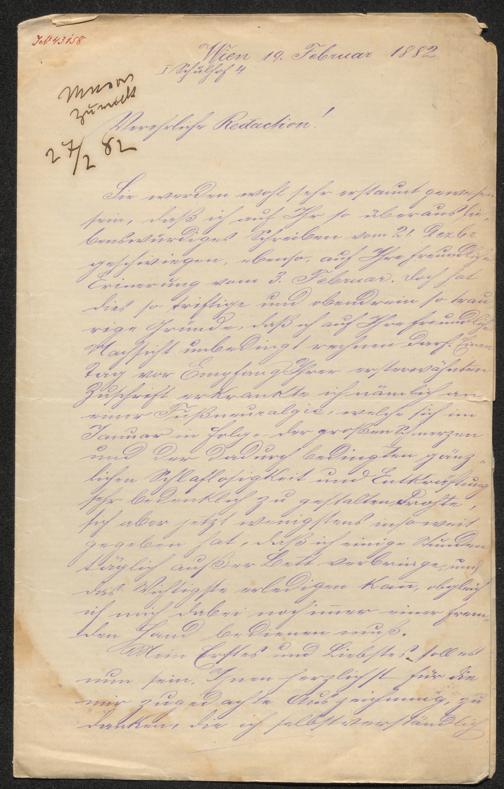 Wien 19. Februar 1882
I Schulhof 4
27/2 82
Verehrliche Redaction!
Sie werden wohl sehr erstaunt gewesen
sein, daß ich auf Ihr so überaus lie-
benswürdiges Schreiben vom 21
geschwiegen, ebenso, auf Ihre freundliche
Erinerung vom 3. Februar. Doch hat
dies so triftige und obendrein so trau-
rige Gründe, daß ich auf Ihre freundliche
Nachsicht unbedingt rechnen darf. Einen
Tag vor Empfang Ihrer ersterwähnten
Zuschrift erkrankte ich nämlich an
einer Fußneuralgie, welche sich im
Januar in Folge der großen Schmerzen
und der dadurch bedingten gänz-
lichen Schlaflosigkeit und Entkräftung
sehr bedenklich zu gestalten drohte,
sich aber jetzt wenigstens insoweit
gegeben hat, daß ich einige Stunden
täglich außer Bett verbringe, und
das Wichtigste erledigen kann, obgleich
ich mich dabei noch immer einer frem-
den Hand bedienen muß.
Mein Erstes und Liebstes soll es
nun sein, Ihnen herzlichst für die
mir zugedachte Auszeichnung zu
danken, die ich selbstverständlich